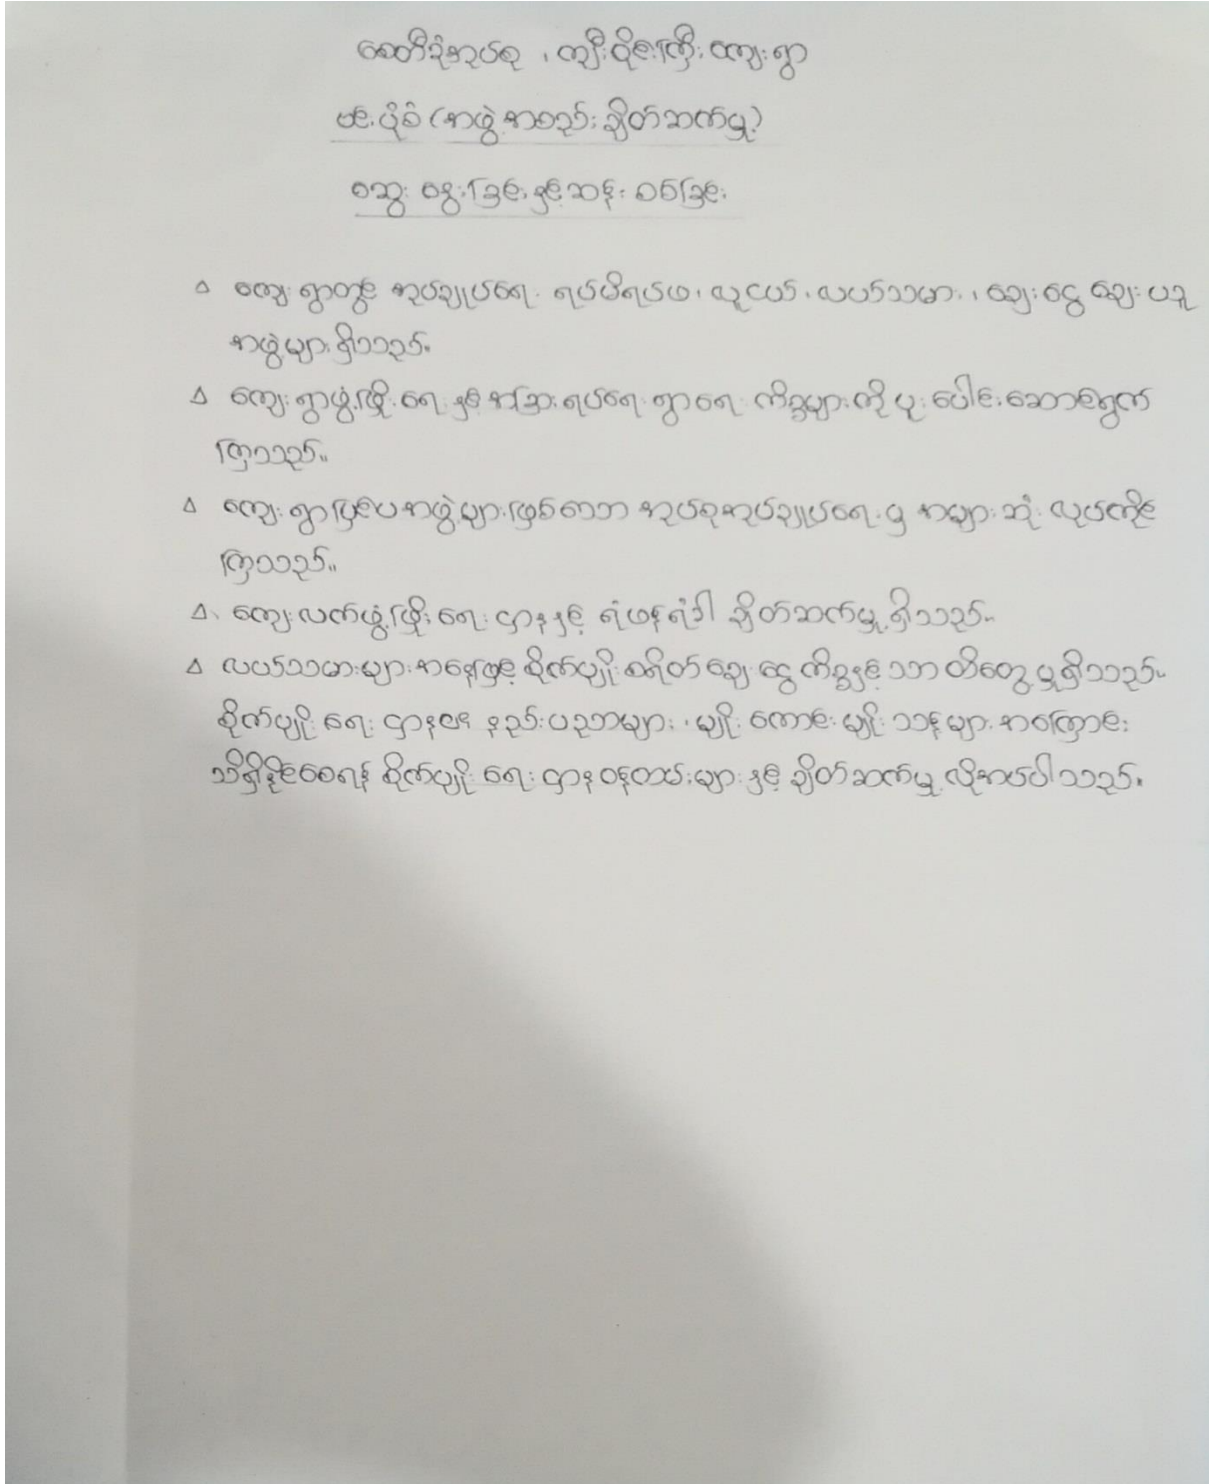 စေတီခုံအုပ်စု ၊ ကျီးပိုင်းကြီး ကျေးရွာ
ဗင်းပုံစံ (အဖွဲ့အစည်းချိတ်ဆက်မှု)
ဆွေးနွေးခြင်းနှင့်ဆန်းစစ်ခြင်း
ကျေးရွာတွင် အုပ်ချုပ်ရေး ရပ်မိရပ်ဖ ၊ လူငယ် ၊ လယ်သမား ၊ ချေးငွေ ချေး ယူ
အဖွဲ့များရှိသည်။
ကျေးရွာဖွံ့ဖြိုးရေးနှင့်အခြားရပ်ရေးရွာရေးကိစ္စများကို ပူးပေါင်းဆောင်ရွက်
ကြသည်။
ကျေးရွာပြင်ပအဖွဲ့များဖြစ်သော အုပ်စုအုပ်ချုပ်ရေးမှ အများဆုံး လုပ်ကိုင်
ကြသည်။
ကျေးလက်ဖွံ့ဖြိုးရေးဌာနနှင့် ရံဖန်ရံခါ ချိတ်ဆက်မှုရှိသည်။
လယ်သမားများအနေဖြင့်စိုက်ပျိုးစရိတ်ချေးငွေကိစ္စနှင့်သာထိတွေ့မှုရှိသည်။
စိုက်ပျိုးရေးဌာနမှ နည်းပညာများ ၊ မျိုးကောင်းမျိုးသန့်များအကြောင်း
သိရှိနိုင်စေရန် စိုက်ပျိုးရေးဌာနဝန်ထမ်းများနှင့်ချိတ်ဆက်မှုလိုအပ်ပါသည်။